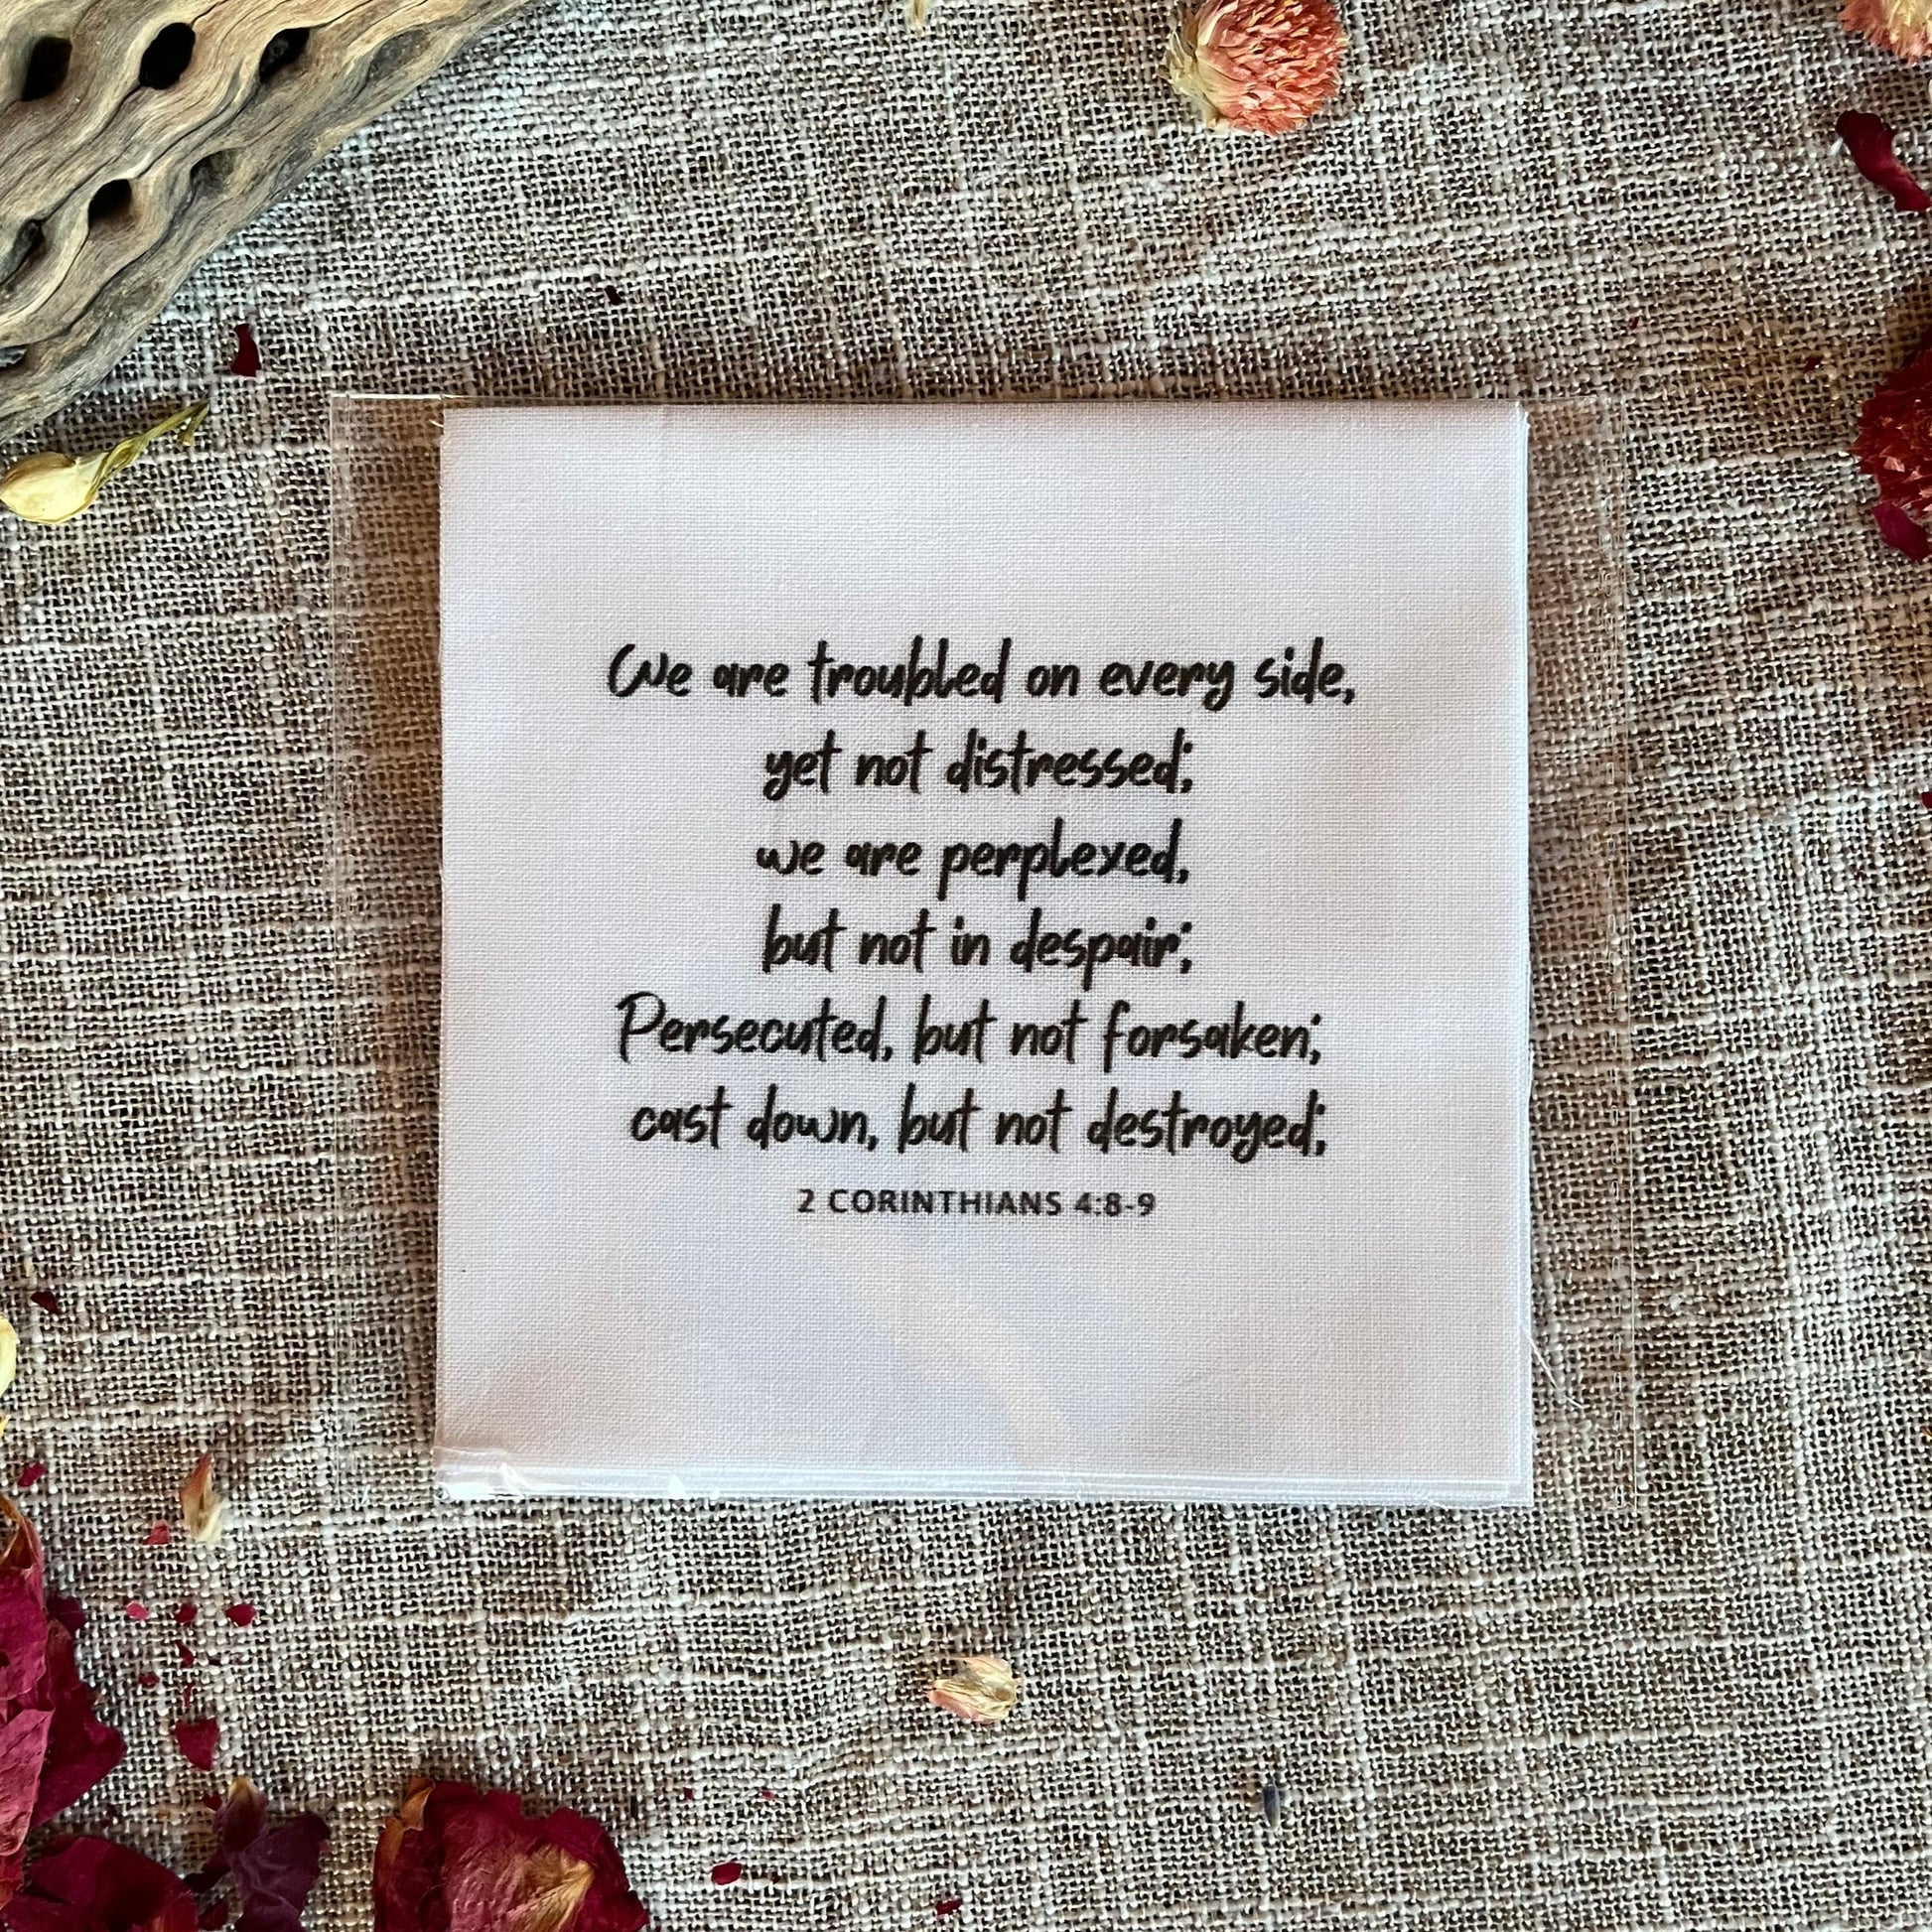 We are troubled on every side,
yet not distressed;
we are perplexed,
but not in despair;
Persecuted, but not forsaken;
cast down, but not destroyed;
2 CORINTHIANS 4:8-9